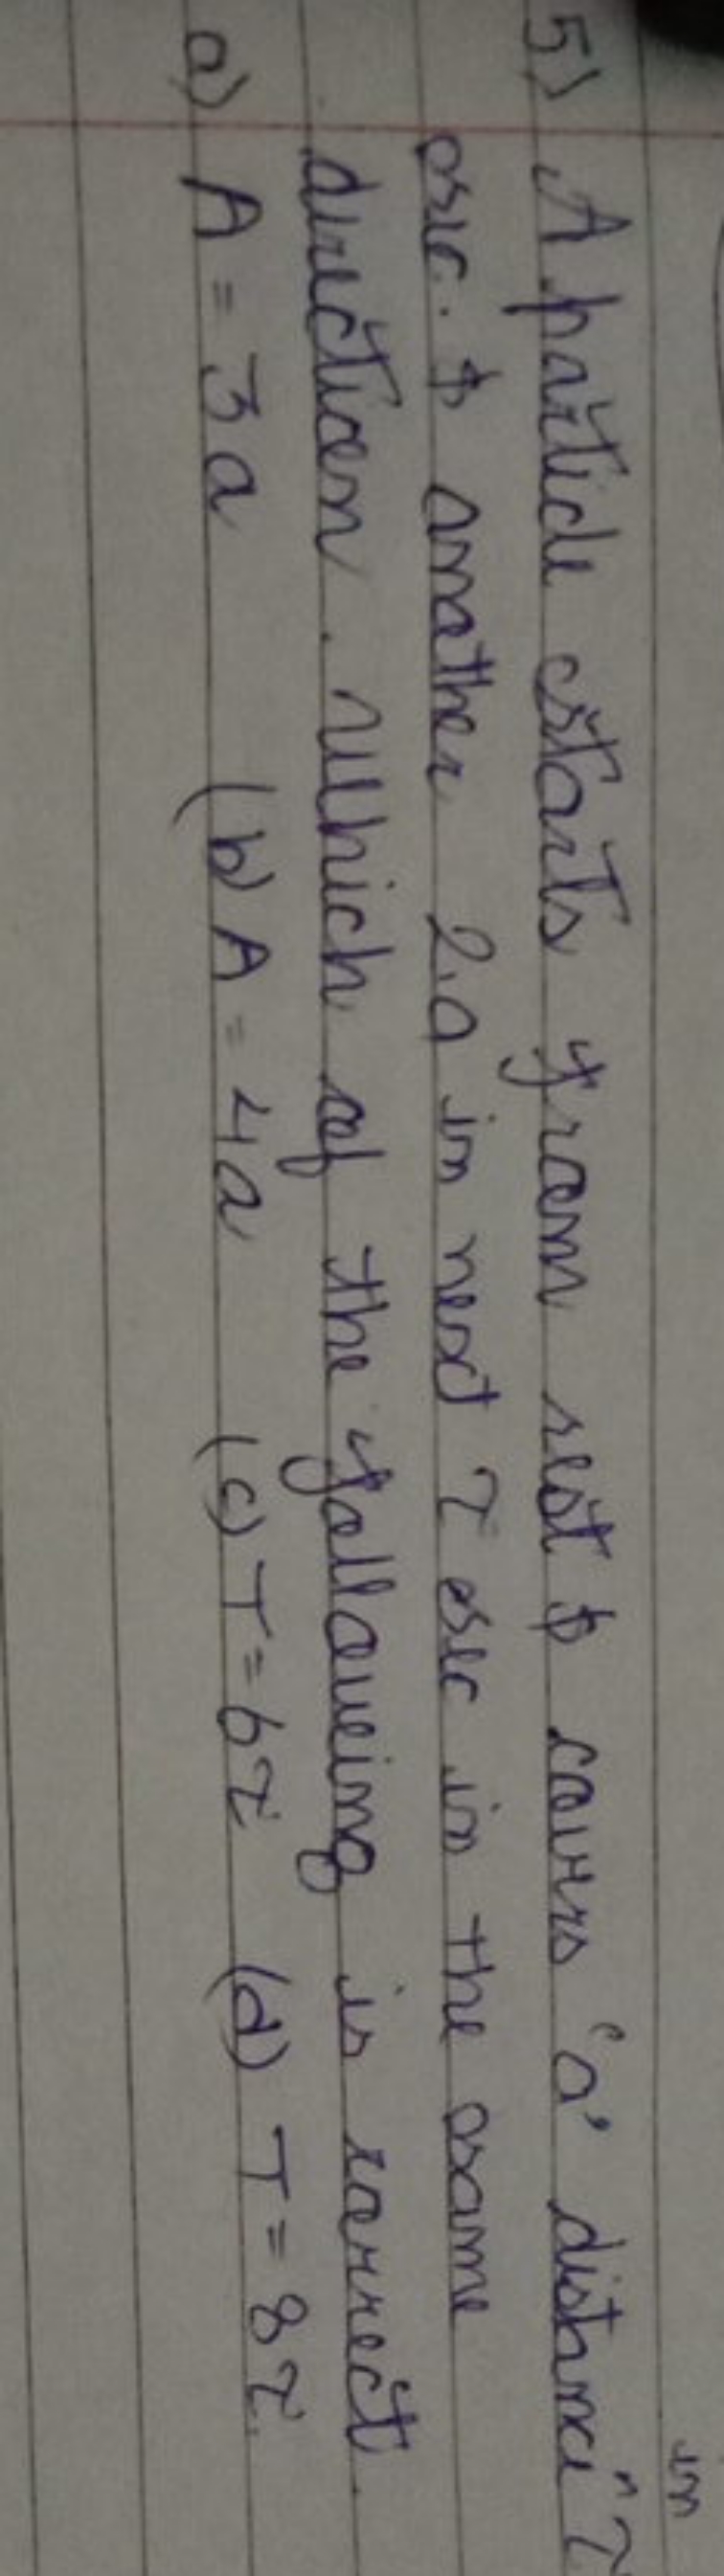 in
5) A particle starts from rest $ covers 'a' distance ^ τ
sec. $ another 2a in next τ sec in the same
direction. Which of the following is correct.
a) A = 3a (b) A = 4a (c) T = 6τ (d) T = 8τ